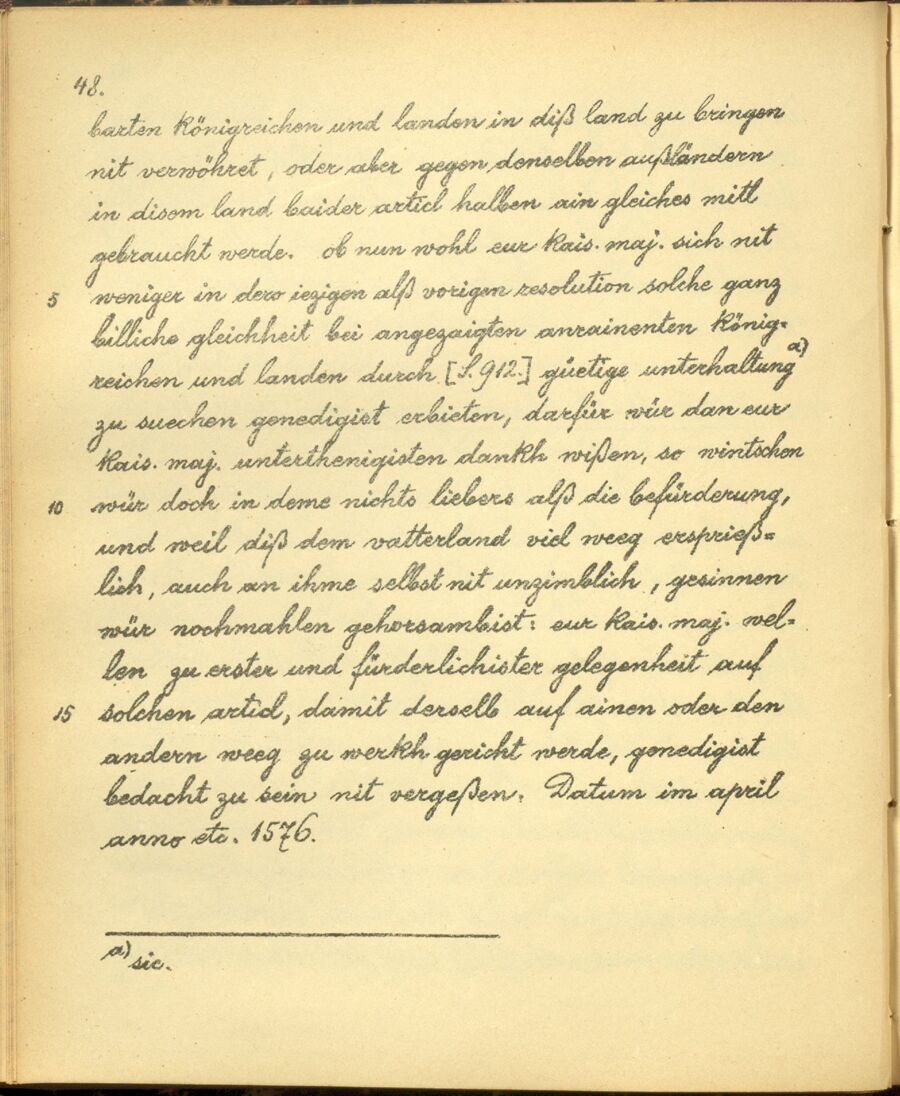 48.
barten königreichen und landen in diß land zu bringen
nit verwöhret, oder aber gegen denselben außländern
in disem land baider articl halben ain gleiches mitl
gebraucht werde. ob nun wohl eur kais. maj. sich nit
5 weniger in dero iezigen alß vorigen resolution solche ganz
billiche gleichheit bei angezaigten anrainenten könig-
reichen und landen durch [S. 912.] güetige unterhaltung a)
zu suechen genedigist erbieten, darfür wür dan eur
kais. maj. unterthenigisten dankh wißen, so wintschen
10 wür doch in deme nichts liebers alß die befürderung,
und weil diß dem vatterland viel weeg ersprieß=
lich, auch an ihme selbst nit unzimblich, gesinnen
wür nochmahlen gehorsambist: eur kais. maj. wel=
len zu erster und fürderlichister gelegenheit auf
15 solchen articl, damit derselb auf ainen oder den
andern weeg zu werkh gericht werde, genedigist
bedacht zu sein nit vergeßen. Datum im april
anno etc. 1576.
a) sic.